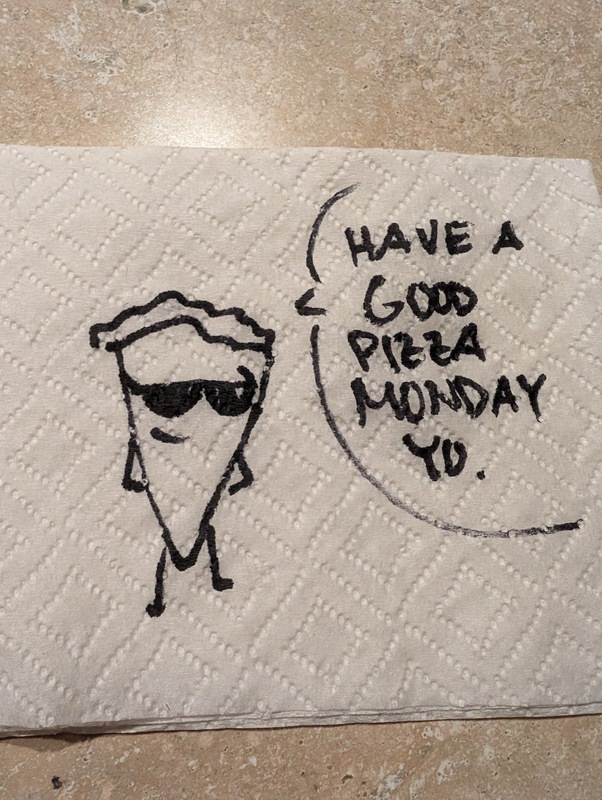 HAVE A
GOOD
PIZZA
MONDAY
YO.